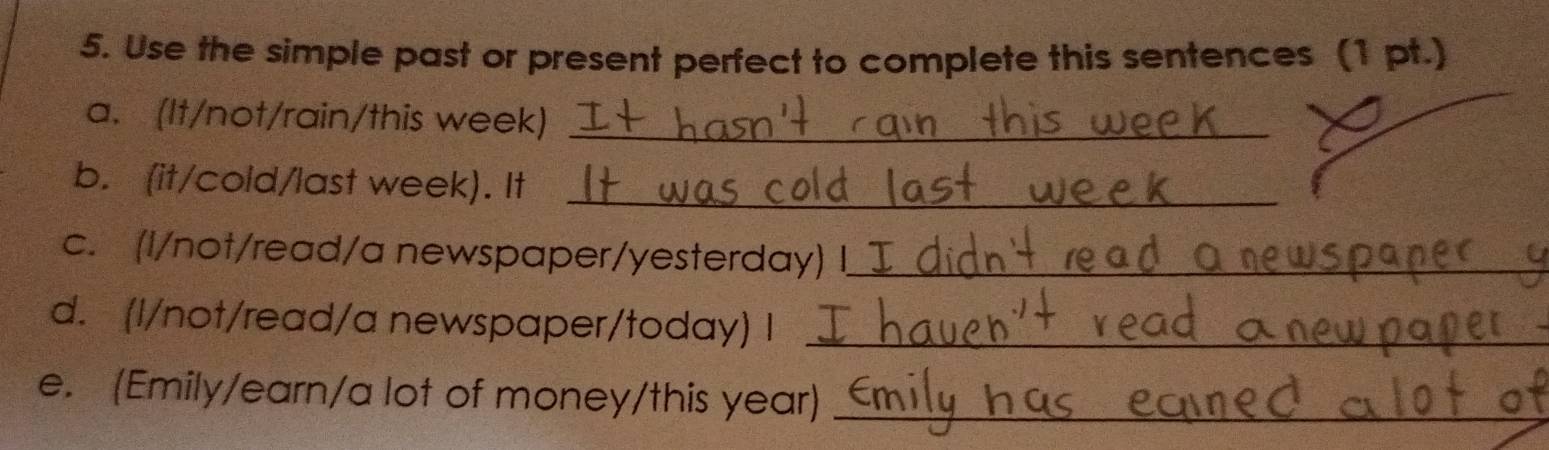 5. Use the simple past or present perfect to complete this sentences (1 pt.)
a. (It/not/rain/this week) It hasn't rain this week
b. (it/cold/last week). It It was cold last week
c. (I/not/read/a newspaper/yesterday) I I didn't read a newspaper y
d. (I/not/read/a newspaper/today) I I haven't read a newpaper
e. (Emily/earn/a lot of money/this year) Emily has earned a lot of